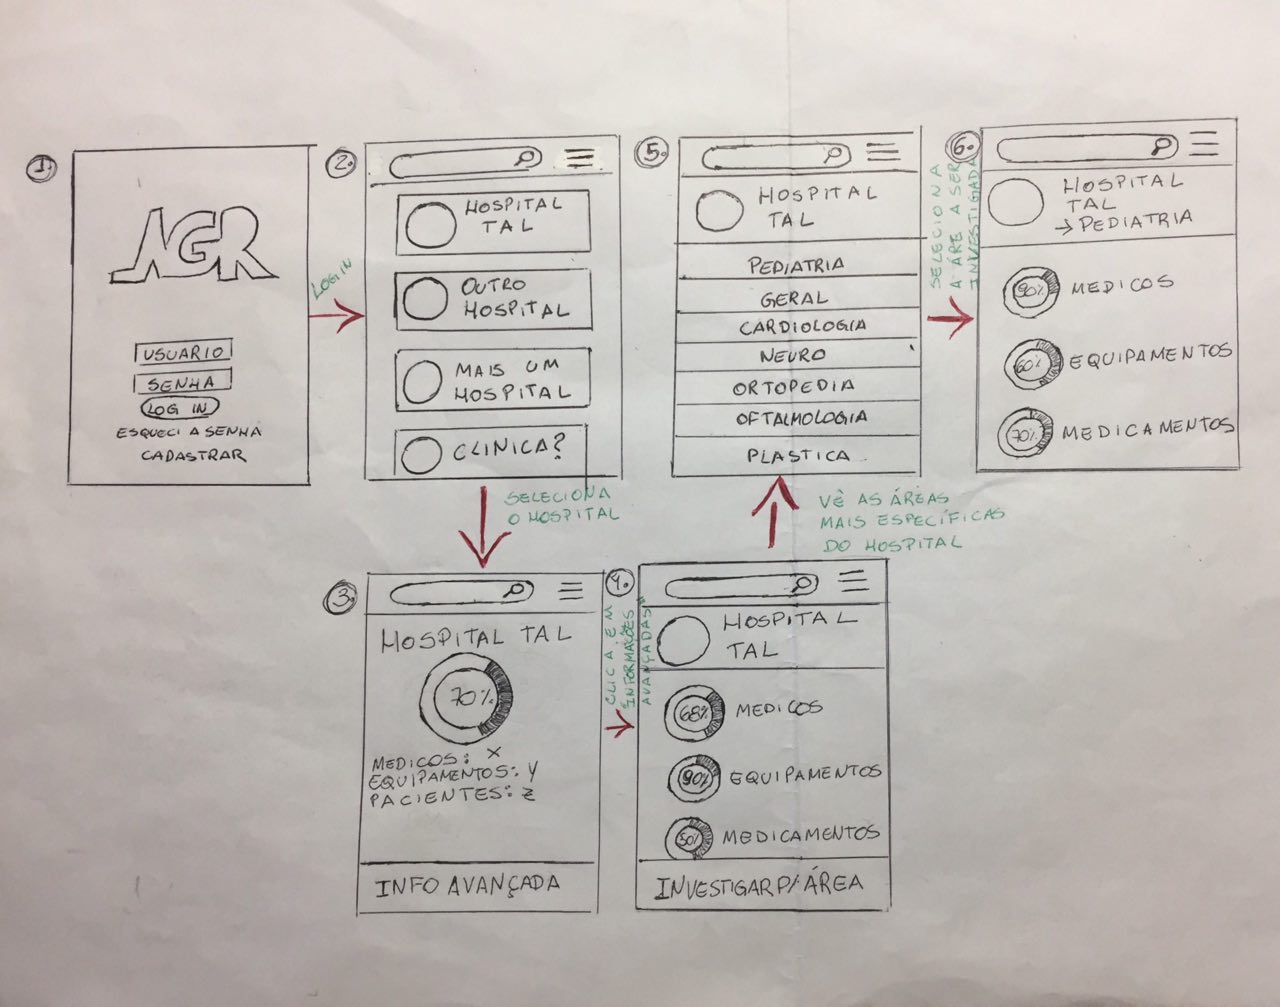 1.
AGR
USUARIO
SENHA
LOG IN
ESQUECI A SENHA
CADASTRAR
LOGIN
2.
HOSPITAL
TAL
OUTRO
HOSPITAL
MAIS UM
HOSPITAL
CLINICA?
SELECIONA
O HOSPITAL
3.
HOSPITAL TAL
70%
MEDICOS: X
EQUIPAMENTOS: Y
PACIENTES: Z
INFO AVANÇADA
CLICA EM
"INFORMAÇÕES
AVANÇADAS"
4.
HOSPITAL
TAL
68% MEDICOS
90% EQUIPAMENTOS
50% MEDICAMENTOS
INVESTIGAR P/ ÁREA
VÊ AS ÁREAS
MAIS ESPECÍFICAS
DO HOSPITAL
5.
HOSPITAL
TAL
PEDIATRIA
GERAL
CARDIOLOGIA
NEURO
ORTOPEDIA
OFTALMOLOGIA
PLASTICA
SELECIONA
A ÁRE A SER
INVESTIGADA
6.
HOSPITAL
TAL
→ PEDIATRIA
90% MEDICOS
60% EQUIPAMENTOS
70% MEDICAMENTOS